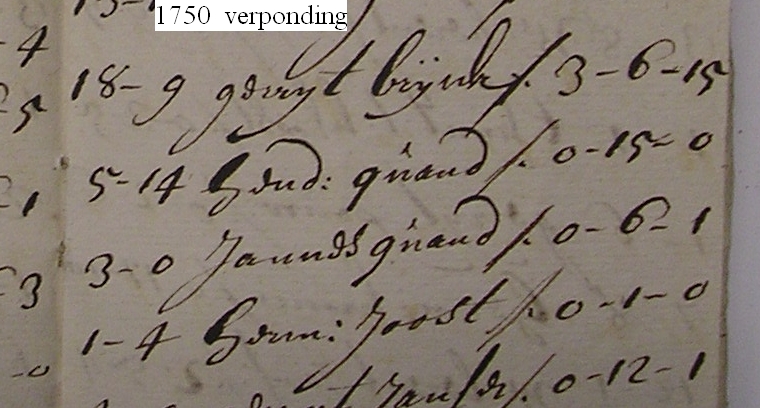 1750 verponding
4
18-9 gerryt brÿnk f. 3-6-15
5
5-14 Hend: quaad f. 0-15-0
1
3-0 Jannes quaad f. 0-6-1
3
1-4 Herm: Joost f. 0-1-0
-0
Jansse f. 0-12-1